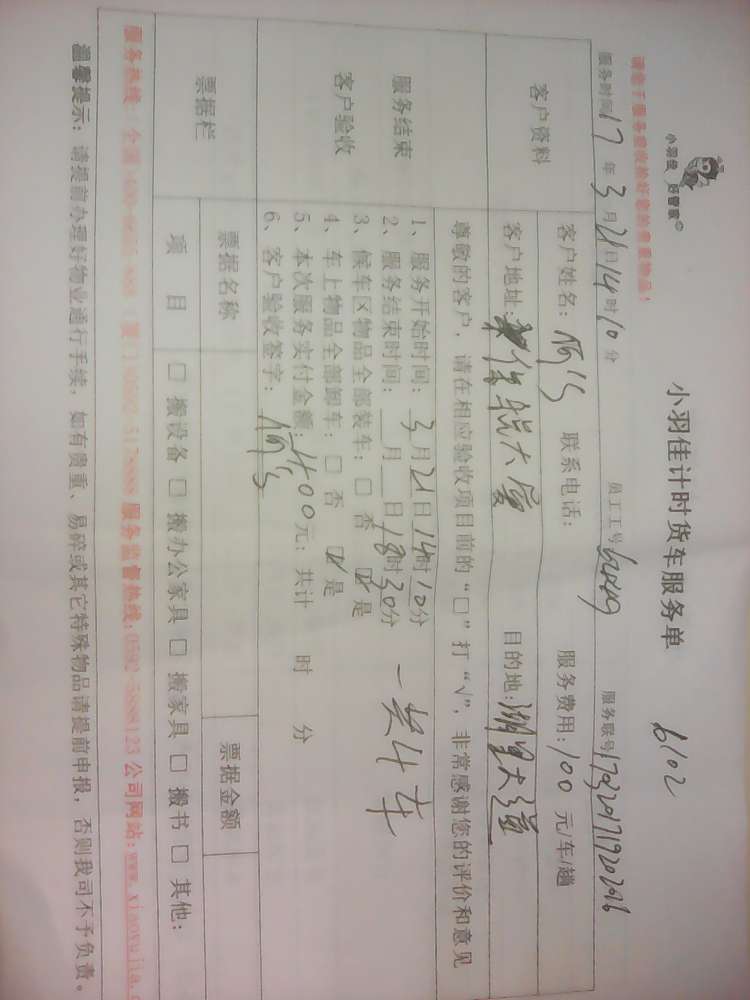 小羽佳 好管家©
小羽佳计时货车服务单 6102
请您于服务前收拾好您的贵重物品！
服务时间17年3月21日14时10分 员工工号 服务联号
客户资料
客户姓名： 联系电话： 服务费用：100元/车/趟
客户地址： 大厦 目的地：湖里大道
尊敬的客户，请在相应验收项目前的“□”打“√”，非常感谢您的评价和意见
服务结束
客户验收
1、服务开始时间：3月21日14时10分
2、服务结束时间：__月__日18时30分
3、候车区物品全部装车：□ 否 ☑ 是
4、车上物品全部卸车：□ 否 ☑ 是
5、本次服务实付金额：400元；共计 时 分
6、客户验收签字：
一共4车
票据栏
票据名称 票据金额
项 目 □ 搬设备 □ 搬办公家具 □ 搬家具 □ 搬书 □ 其他：
服务热线：全国 服务监督热线:0592-5888123 公司网站:www.xiaoyujia.c
温馨提示：请提前办理好物业通行手续，如有贵重、易碎或其它特殊物品请提前申报，否则我司不予负责。